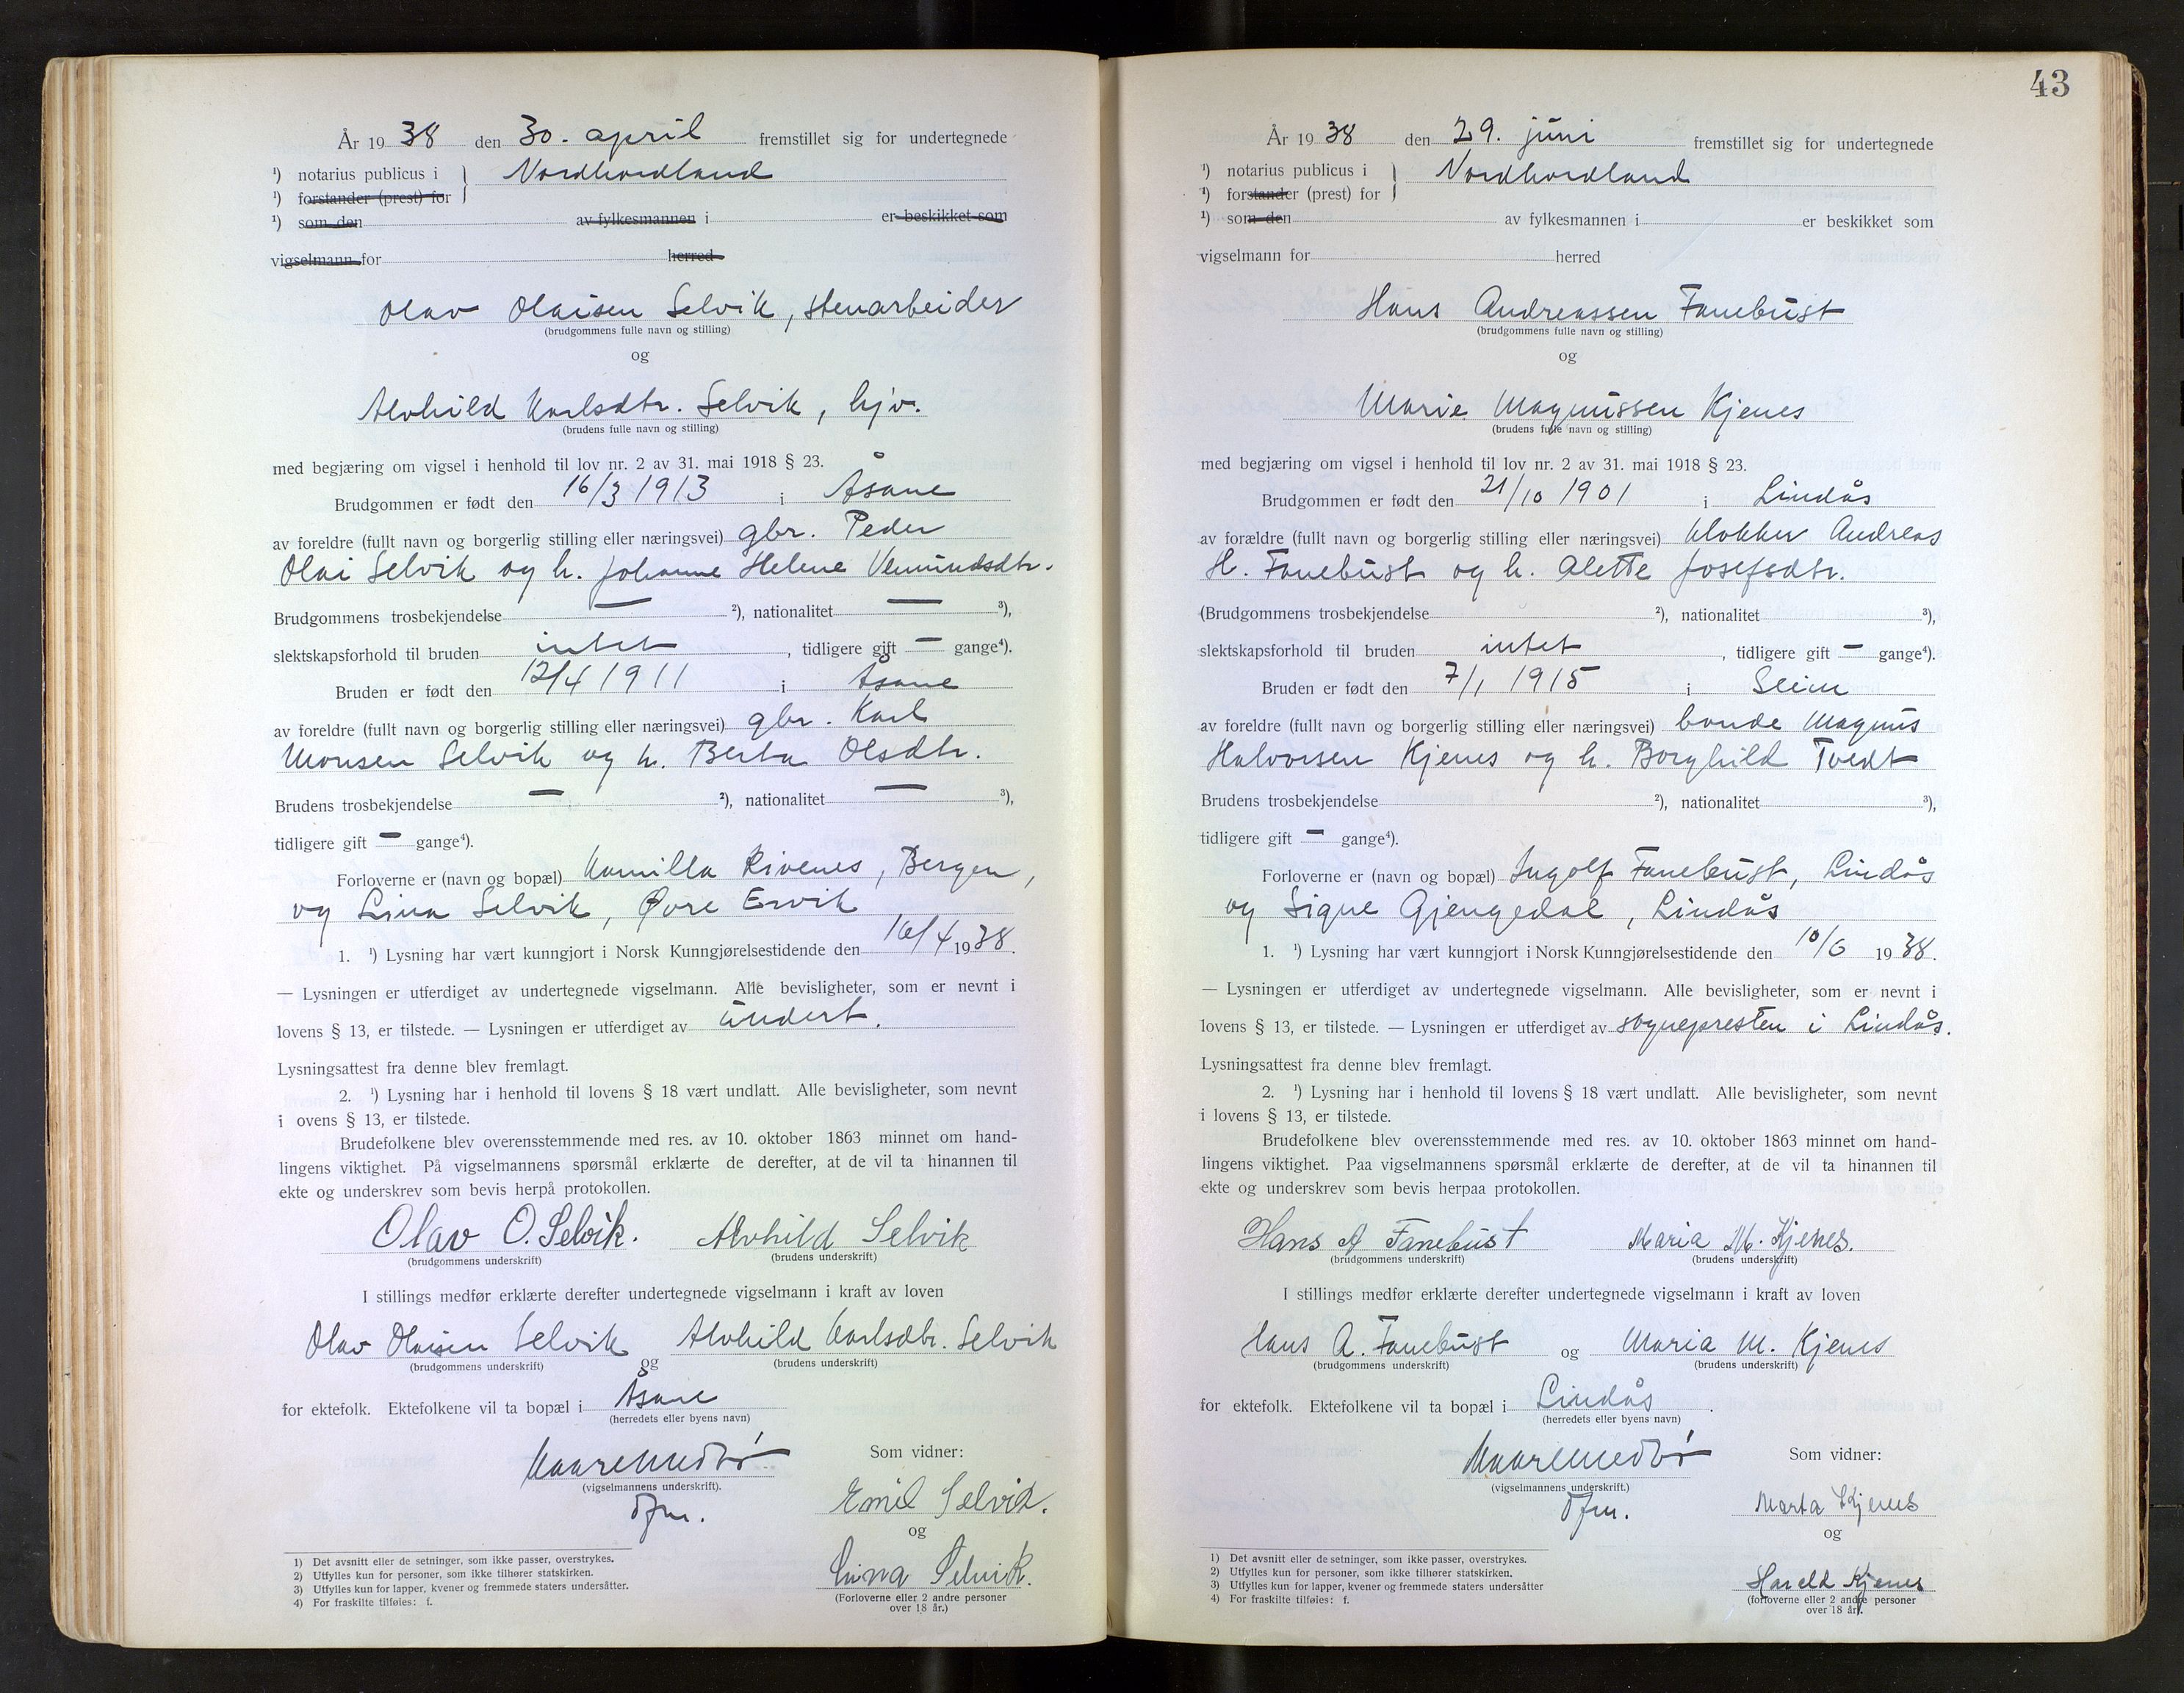 År 19 38 den 30. april fremstillet sig for undertegnede
¹) notarius publicus i } Nordhordland
¹) forstander (prest) for
¹) som den av fylkesmannen i er beskikket som
vigselmann for herred
Olav Olaisen Selvik, stenarbeider
(brudgommens fulle navn og stilling)
og
Alvhild Karlsdtr. Selvik, hjv.
(brudens fulle navn og stilling)
med begjæring om vigsel i henhold til lov nr. 2 av 31. mai 1918 § 23.
Brudgommen er født den 16/3 1913 i Åsane
av foreldre (fullt navn og borgerlig stilling eller næringsvei) gbr. Peder
Olai Selvik og h. Johanne Helene Vemundsdtr.
Brudgommens trosbekjendelse — ²), nationalitet — ³),
slektskapsforhold til bruden intet, tidligere gift — gange⁴).
Bruden er født den 12/4 1911 i Åsane
av foreldre (fullt navn og borgerlig stilling eller næringsvei) gbr. Karl
Monsen Selvik og h. Berta Olsdtr.
Brudens trosbekjendelse — ²), nationalitet — ³),
tidligere gift — gange⁴).
Forloverne er (navn og bopæl) Kamilla Rivenes, Bergen,
og Lina Selvik, Øvre Ervik
1. ¹) Lysning har vært kunngjort i Norsk Kunngjørelsestidende den 16/4 1938.
— Lysningen er utferdiget av undertegnede vigselmann. Alle bevisligheter, som er nevnt i
lovens § 13, er tilstede. — Lysningen er utferdiget av undert.
Lysningsattest fra denne blev fremlagt.
2. ¹) Lysning har i henhold til lovens § 18 vært undlatt. Alle bevisligheter, som nevnt
i ovens § 13, er tilstede.
Brudefolkene blev overensstemmende med res. av 10. oktober 1863 minnet om hand-
lingens viktighet. På vigselmannens spørsmål erklærte de derefter, at de vil ta hinannen til
ekte og underskrev som bevis herpå protokollen.
Olav O. Selvik. Alvhild Selvik
(brudgommens underskrift) (brudens underskrift)
I stillings medfør erklærte derefter undertegnede vigselmann i kraft av loven
Olav Olaisen Selvik og Alvhild Karlsdtr. Selvik
(brudgommens underskrift) (brudens underskrift)
for ektefolk. Ektefolkene vil ta bopæl i Åsane
(herredets eller byens navn)
Som vidner:
(vigselmannens underskrift).
Emil Selvik.
og
Lina Selvik.
(Forloverne eller 2 andre personer
over 18 år.)
1) Det avsnitt eller de setninger, som ikke passer, overstrykes.
2) Utfylles kun for personer, som ikke tilhører statskirken.
3) Utfylles kun for lapper, kvener og fremmede staters undersåtter.
4) For fraskilte tilføies: f.
43
År 19 38 den 29. juni fremstillet sig for undertegnede
¹) notarius publicus i } Nordhordland
¹) forstander (prest) for
¹) som den av fylkesmannen i er beskikket som
vigselmann for herred
Hans Andreassen Fanebust
(brudgommens fulle navn og stilling)
og
Marie Magnussen Kjenes
(brudens fulle navn og stilling)
med begjæring om vigsel i henhold til lov nr. 2 av 31. mai 1918 § 23.
Brudgommen er født den 21/10 1901 i Lindås
av forældre (fullt navn og borgerlig stilling eller næringsvei) klokker Andreas
H. Fanebust og h. Alette Josefsdtr.
(Brudgommens trosbekjendelse ²), nationalitet ³),
slektskapsforhold til bruden intet, tidligere gift — gange⁴).
Bruden er født den 7/1 1915 i Seim
av foreldre (fullt navn og borgerlig stilling eller næringsvei) bonde Magnus
Halvorsen Kjenes og h. Borghild Tvedt
Brudens trosbekjendelse ²), nationalitet ³),
tidligere gift — gange⁴).
Forloverne er (navn og bopæl) Ingolf Fanebust, Lindås
og Signe Gjengedal, Lindås
1. ¹) Lysning har vært kunngjort i Norsk Kunngjørelsestidende den 10/6 1938.
— Lysningen er utferdiget av undertegnede vigselmann. Alle bevisligheter, som er nevnt i
lovens § 13, er tilstede. — Lysningen er utferdiget av sognepresten i Lindås.
Lysningsattest fra denne blev fremlagt.
2. ¹) Lysning har i henhold til lovens § 18 vært undlatt. Alle bevisligheter, som nevnt
i lovens § 13, er tilstede.
Brudefolkene blev overensstemmende med res. av 10. oktober 1863 minnet om hand-
lingens viktighet. Paa vigselmannens spørsmål erklærte de derefter, at de vil ta hinannen til
ekte og underskrev som bevis herpaa protokollen.
Hans A Fanebust Maria M. Kjenes.
(brudgommens underskrift) (brudens underskrift)
I stillings medfør erklærte derefter undertegnede vigselmann i kraft av loven
Hans A. Fanebust og Maria M. Kjenes
(brudgommens underskrift) (brudens underskrift)
for ektefolk. Ektefolkene vil ta bopæl i Lindås.
(herredets eller byens navn)
Som vidner:
(vigselmannens underskrift.)
Marta Kjenes
og
Harald Kjenes
(forloverne eller 2 andre personer
over 18 år).
1) Det avsnitt eller de setninger, som ikke passer, overstrykes.
2) Utfylles kun for personer, som ikke tilhører statskirken.
3) Utfylles kun for lapper, kvener og fremmede staters undersåtter
4) For fraskilte tilføies: f.